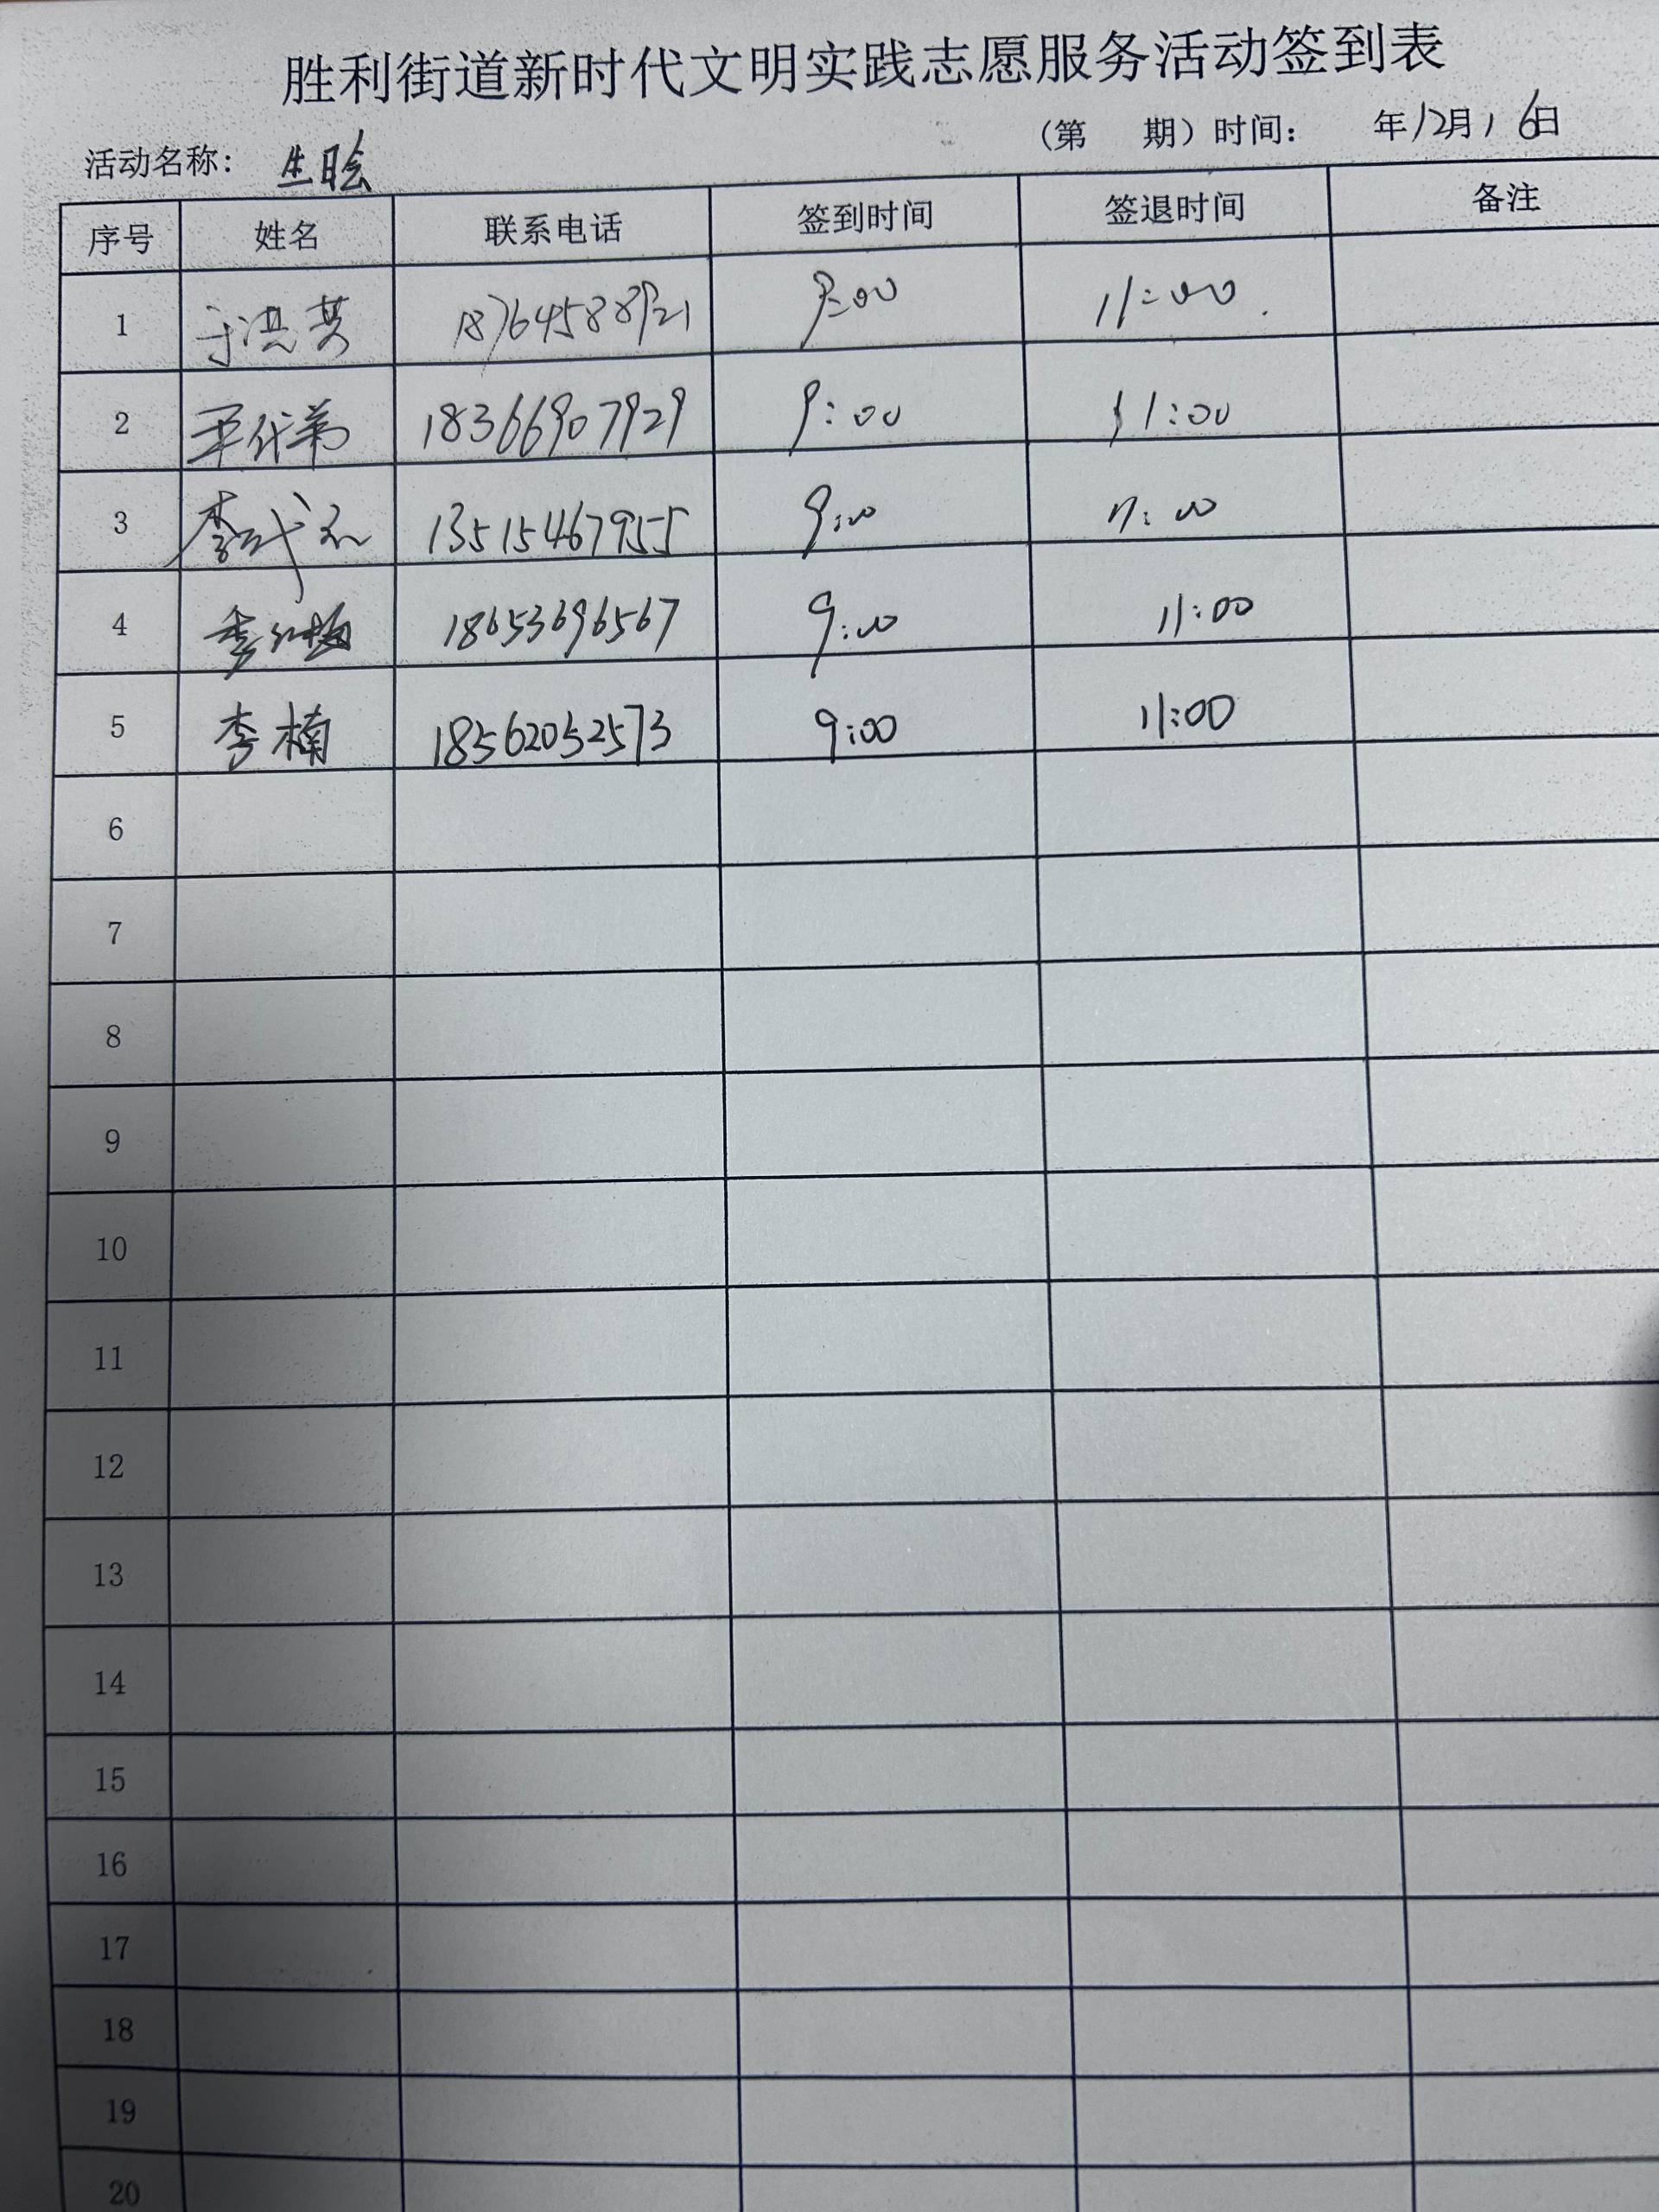 胜利街道新时代文明实践志愿服务活动签到表
活动名称： 生日会 （第 期）时间： 年12月16日
序号 姓名 联系电话 签到时间 签退时间 备注
1 于洪英 18764588921 9:00 11:00
2 18366907929 9:00 11:00
3 李 13515467955 9:00 11:00
4 李红梅 18653696567 9:00 11:00
5 李楠 18562032573 9:00 11:00
6
7
8
9
10
11
12
13
14
15
16
17
18
19
20